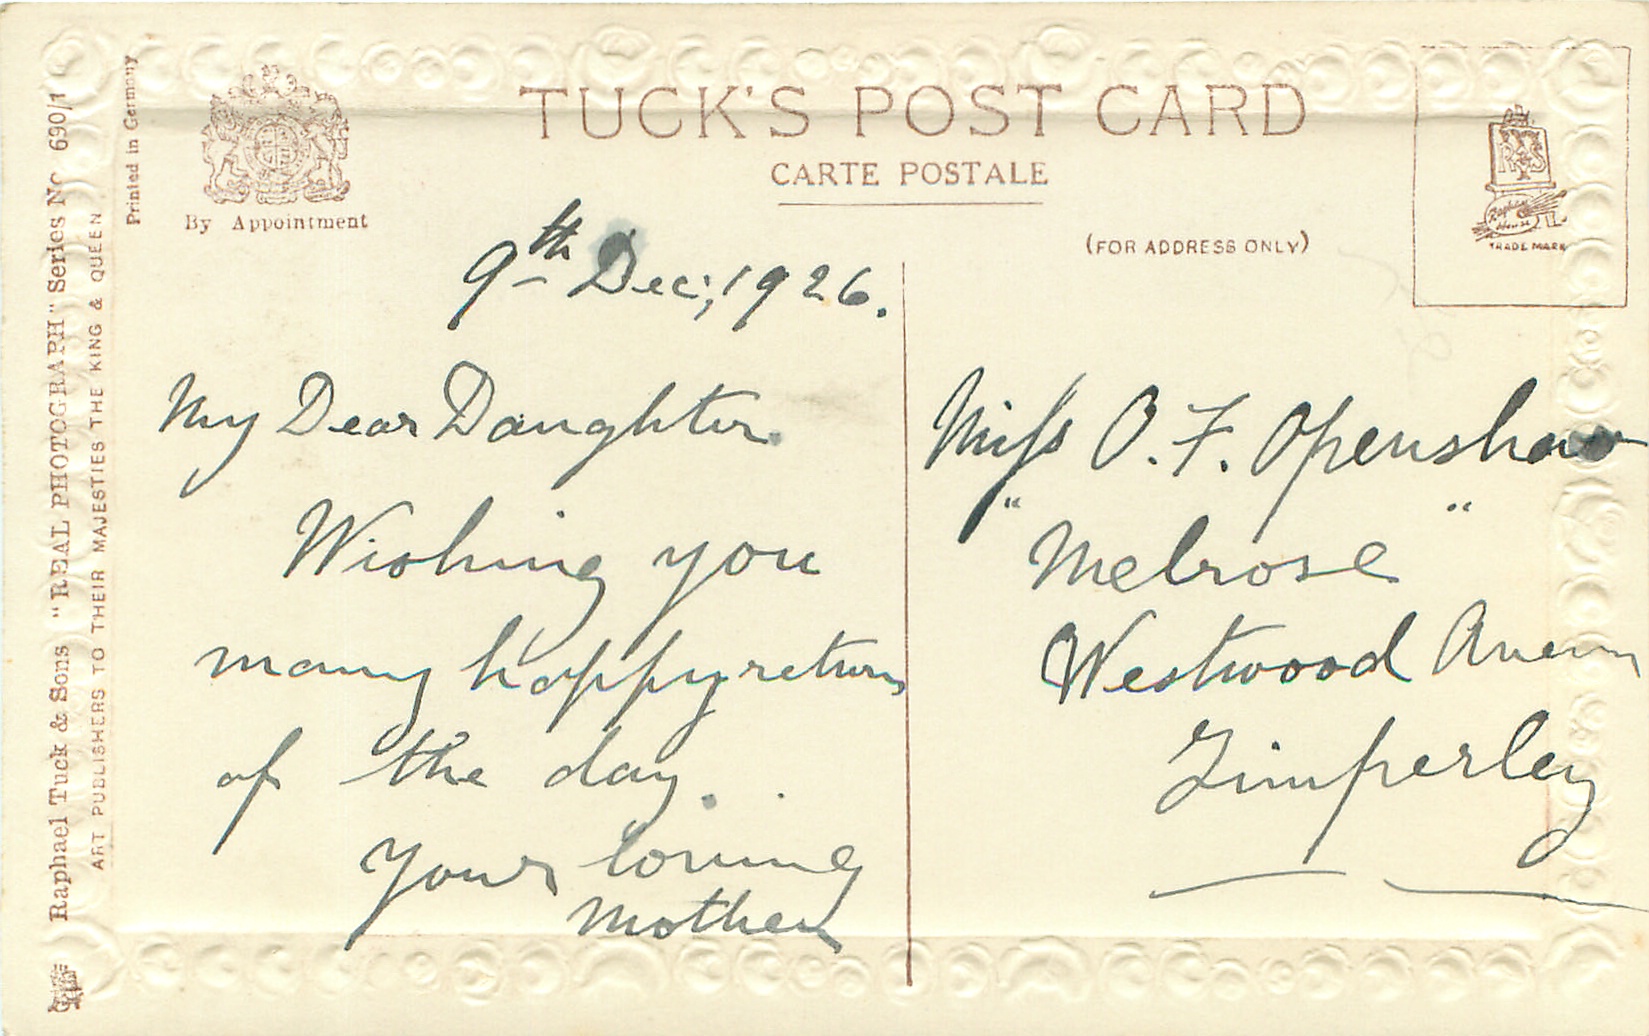 TUCK'S POST CARD
CARTE POSTALE
By Appointment
(FOR ADDRESS ONLY)
TRADE MARK
Printed in Germany
Raphael Tuck & Sons "REAL PHOTOGRAPH" Series No 690/1
ART PUBLISHERS TO THEIR MAJESTIES THE KING & QUEEN
9th Dec; 1926.
My Dear Daughter.
Wishing you
many happy returns
of the day.
Your loving
Mother
Miss O. F. Openshaw
"Melrose"
Westwood Avenue
Timperley